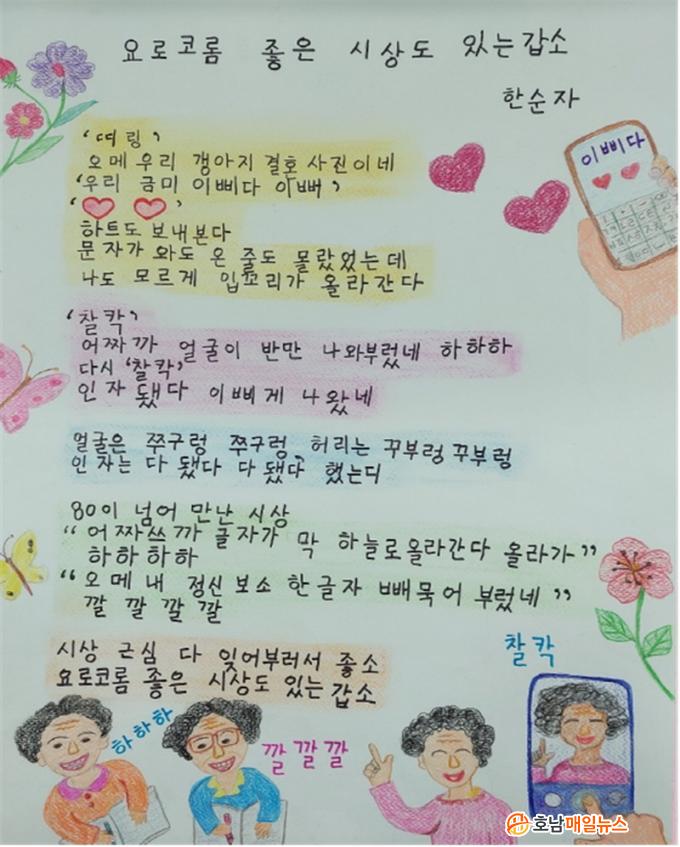 요로코롬 좋은 시상도 있는갑소
한순자
'띠링'
오메 우리 갱아지 결혼 사진이네
'우리 금미 이삐다 이뻐'
'♥ ♥'
하트도 보내본다
문자가 와도 온 줄도 몰랐었는데
나도 모르게 입꼬리가 올라간다
이삐다
'찰칵'
어짜까 얼굴이 반만 나와부렀네 하하하
다시 '찰칵'
인자 됐다 이삐게 나왔네
얼굴은 쭈구렁 쭈구렁, 허리는 꾸부렁 꾸부렁
인자는 다 됐다 다 됐다 했는디
80이 넘어 만난 시상
"어짜쓰까 글자가 막 하늘로올라간다 올라가"
하하하하
"오메 내 정신보소 한글자 빼묵어 부렀네"
깔 깔 깔 깔
시상 근심 다 잊어부러서 좋소
요로코롬 좋은 시상도 있는갑소
하하하
깔깔깔
찰칵
호남매일뉴스